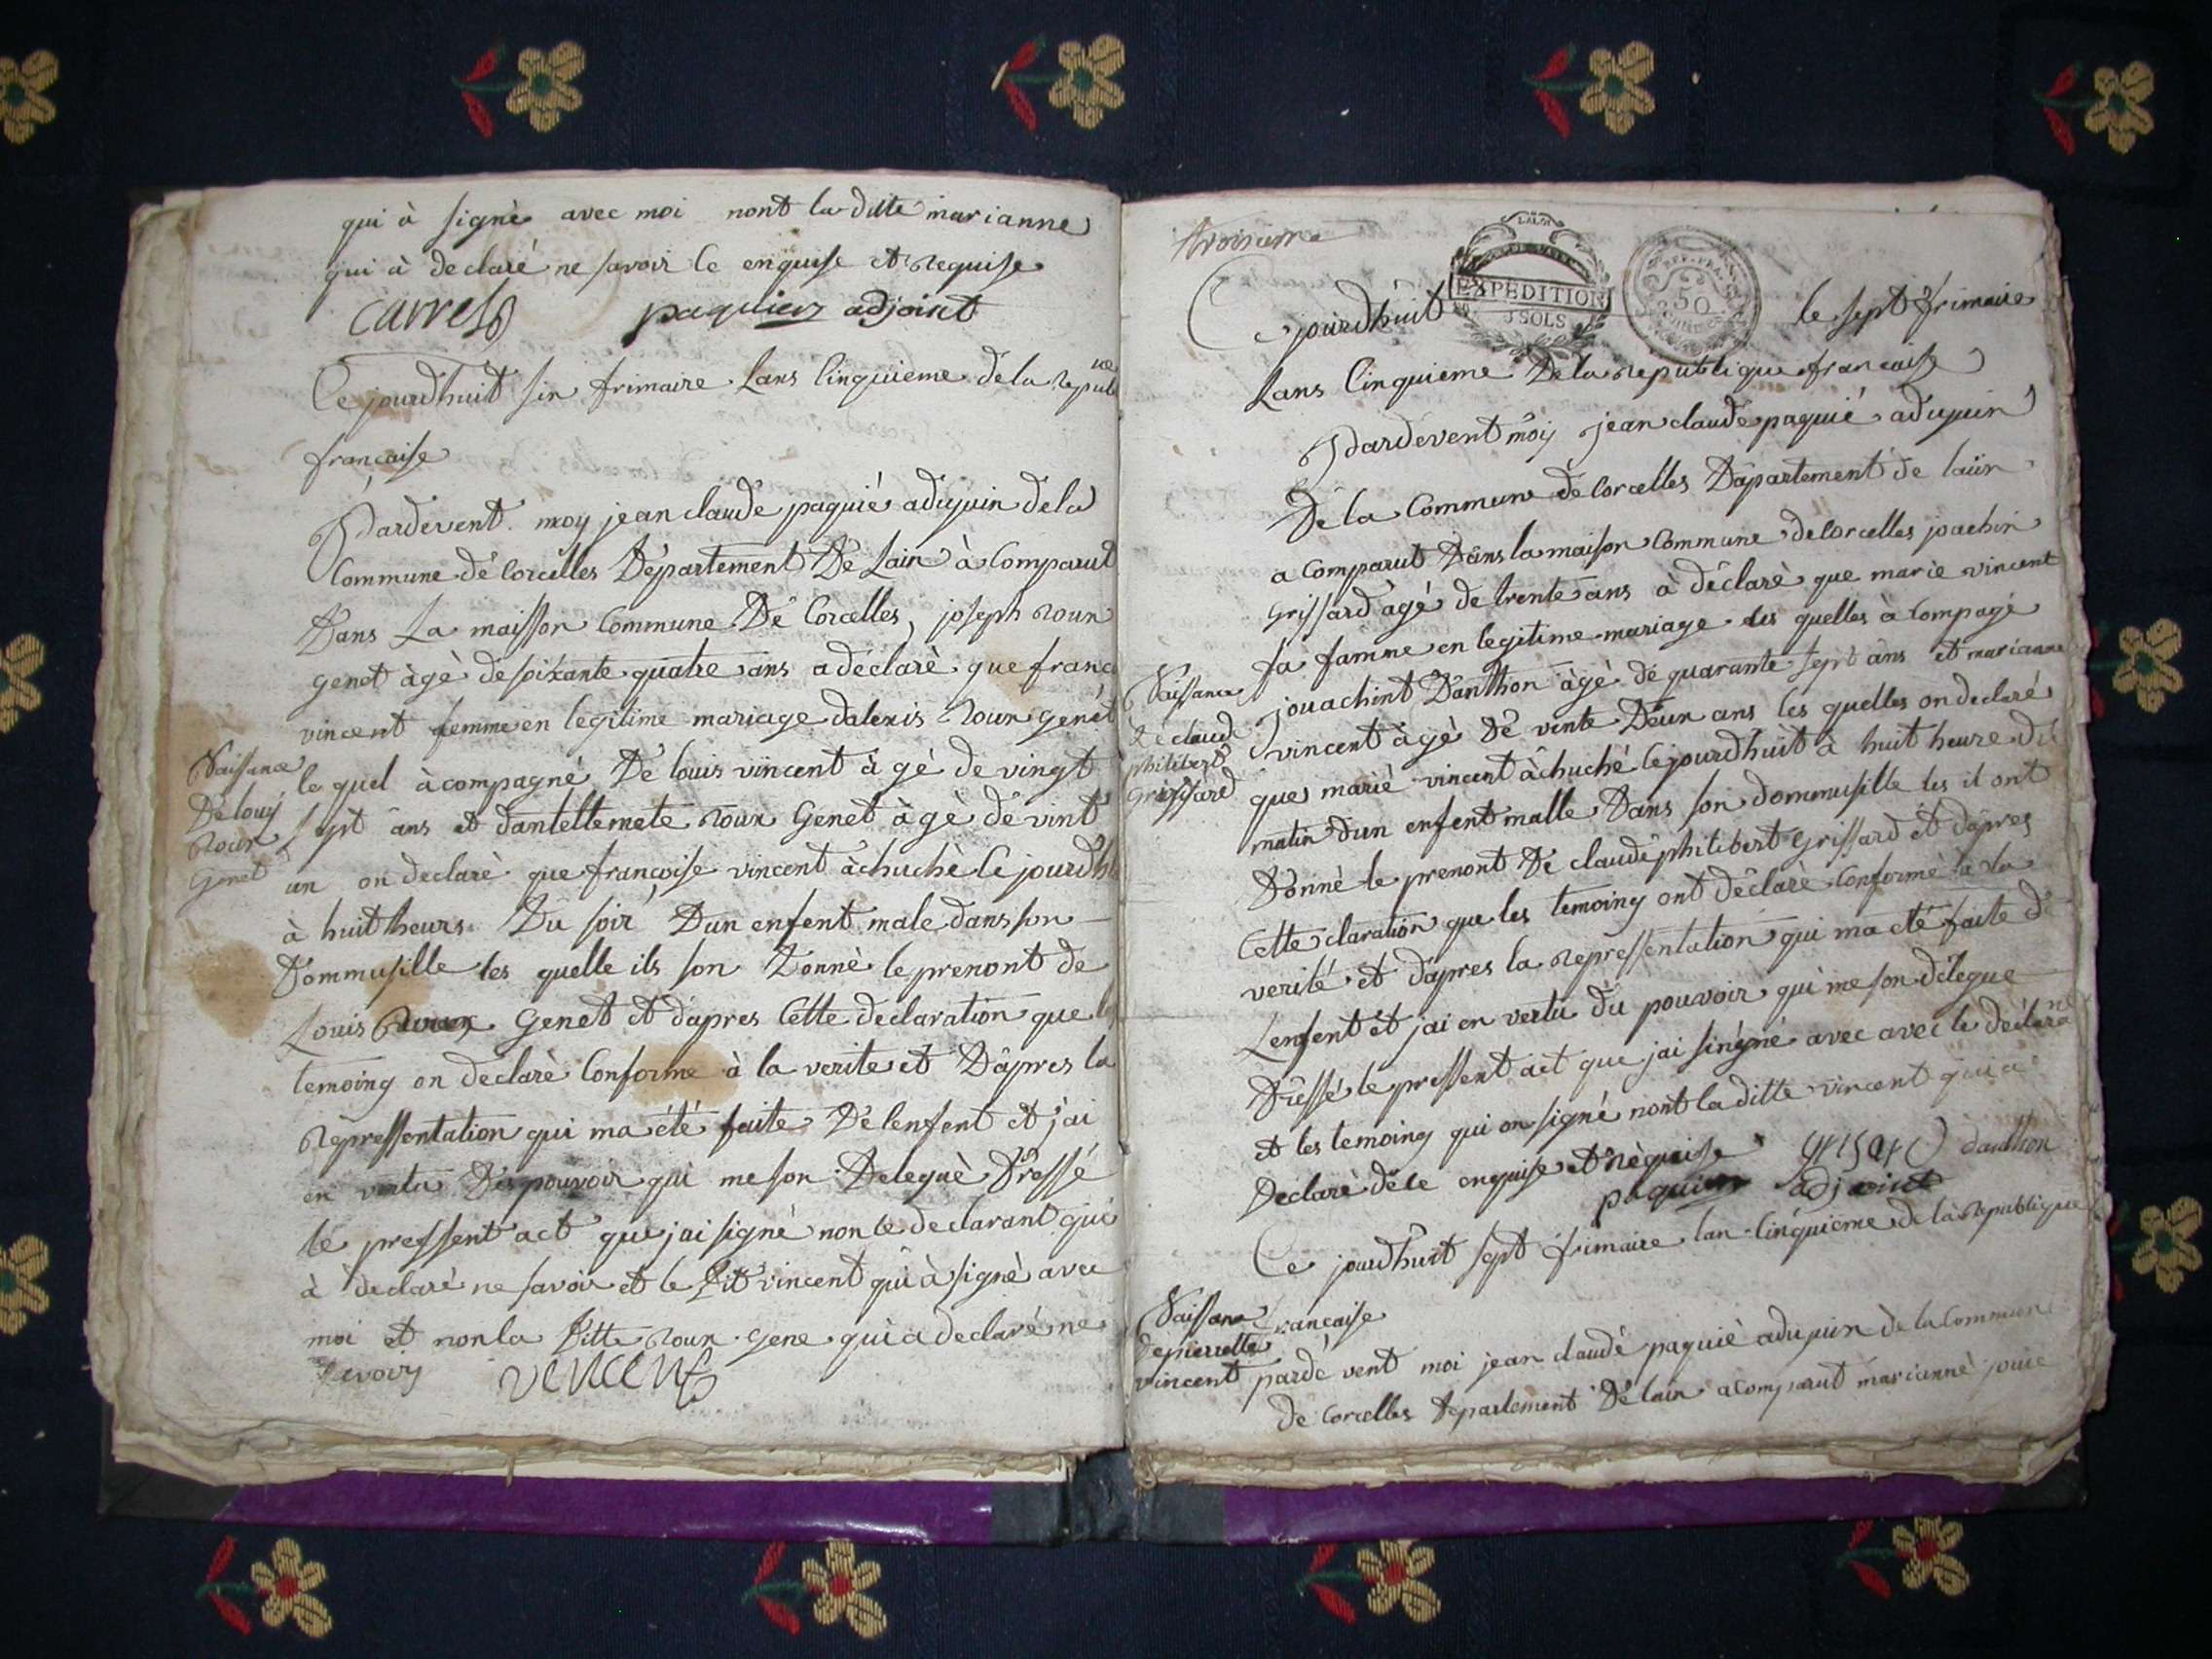 qui à signé avec moi nont la ditte marianne
qui à declaré ne savoir le enquise et Requise
carres paquier adjoint
Ce jourdhuit six frimaire Lans Cinquieme de la republ
francaise
Pardevent moy jean claude paquié adujuin de la
Commune de Corcelles Département De Lain à Comparut
Dans La maisson Commune De Corcelles, joseph roux
genet àgè de soixante quatre ans a déclarè que franc
vincent femme en legitime mariage dalexis Roux genet
Naissance
De louis
Roux
Genet
le quel àcompagné De louis vincent à gè de vingt
sept âns et Roux Genet àgè de vint
un on declarè que francoise vincent àchuchè Ce jourdh
à huit heurs Du soir Dun enfent male dans son
Dommusille les quelle ils son Donnè le prenont de
Louis Roux Genet et dapres Cette declaration que les
temoing on declarè Conforme à la verite et Dâpres la
Representation qui ma été faite De lenfent et j'ai
en vertu Des pouvoir qui me son Deleguè Dressé
lé pressent act que jai signé non le declarant qui
à declaré ne savoir et le Dit vincent qui à signè avec
moi et non la Ditte Roux gene qui a declaré ne
savoir vencent
troisieme
LA LOI
EXPEDITION
3 SOLS
REP. FRA.
50
Centimes
Ce jourdhuit le sept frimaire
Lans Cinquieme De la republique francaise
Pardevent moy jean claude paquié adujuin
De la Commune de Corcelles Dapartement de lain
a Comparut Dans la maison Commune de Corcelles joachin
Grissard âgé de trente ans à dêclaré que marie vincent
sa famme en legitime mariage les quelles à Compagé
Naissance
De claude
philibert
Grissard
jouachint Danthon àgè de quarante sept âns et marianne
vincent àgè De vente Deux ans les quelles on declaré
que marie vincent àchuché Ce jourdhuit à huit heure du
matin dun enfent malle Dans son dommusille les il ont
Donné le prenont De claude philibert Grissard et dâpres
Cette claration que les temoing ont dêclarè Conforme à la
verité et dapres la Repressentation qui ma eté faite de
Lenfent et jai en vertu du pouvoir qui me son délegue
Dressé le pressent act que jai sinégné avec avec le declara
et les temoing qui on signé nont la ditte vincent qui a
Declaré de le enquise et Réquise grisard danthon
paquier adjoint
Ce jourdhuit sept frimaire lan Cinquieme de la Republique
francaise
Naissance
de pierrette
vincent
pardevent moi jean claude paquié adujuin de la Commune
de Corcelles Departement De lain a Comparut marianne jouie